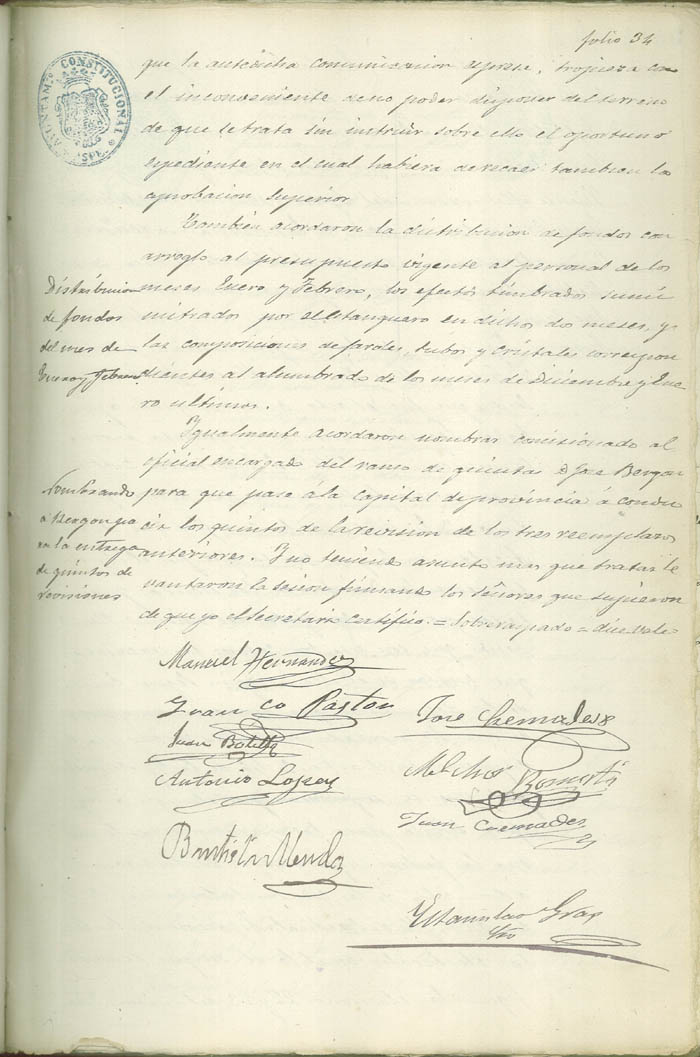 folio 34
AYUNTAM. CONSTITUCIONAL
ASPE
que la autoridad comunicacion espresa, tropieza con
el inconveniente de no poder disponer del terreno
de que se trata sin instruir sobre ello el oportuno
espediente en el cual habiera de recaer tambien la
aprobacion superior
Tambien acordaron la distribucion de fondos con
arreglo al presupuesto vigente al personal de los
Distribucion
de fondos
del mes de
Enero y Febrero
meses Enero y Febrero, los efectos timbrados sumi
nitrados por el Estanquero en dichos dos meses, y
las composiciones de faroles, tubos y cristales correspon
dientes al alumbrado de los meses de Diciembre y Ene
ro ultimos.
Ygualmente acordaron nombrar comisionado al
oficial encargado del ramo de quintas D. Jose Bergon
Nombrando
a
en la entrega
de quintos de
revisiones
para que pase á la capital de provincia á condu
cir los quintos de la revision de los tres reemplazos
anteriores. Y no teniendo asunto mas que tratar le
vantaron la sesion firmando los Señores que supieron
de que yo el Secretario certifico. = Sobreraspado = dice vale
Manuel Hernandez
Franco Pastor
Jose Cremades
Juan Botella
Antonio Lopez
Melchor
Juan Cremades
Bautista
Estanislao Gras
Srio